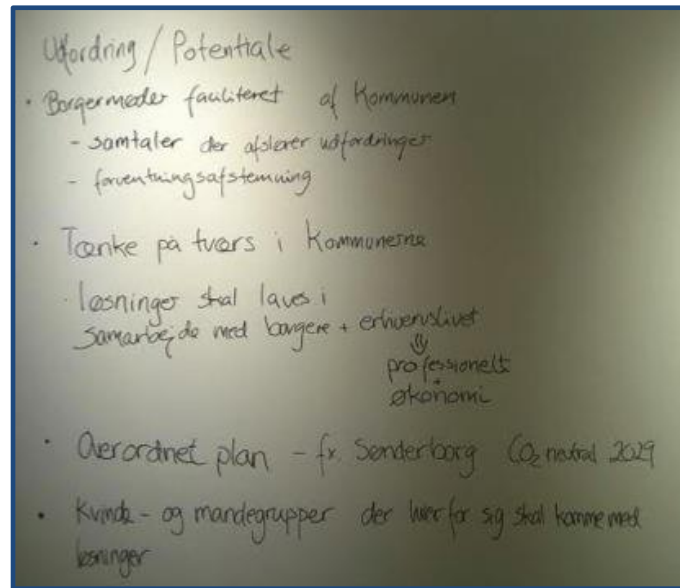 Udfordring / Potentiale
• Borgermøder faciliteret af Kommunen
- samtaler der afslører udfordringer
- forventningsafstemning
• Tænke på tværs i Kommunerne
· løsninger skal laves i
samarbejde med borgere + erhvervslivet
⇓
professionelt
+
økonomi
• Overordnet plan - fx. Sønderborg CO₂ neutral 2029
• Kvinde- og mandegrupper der hver for sig skal komme med
løsninger